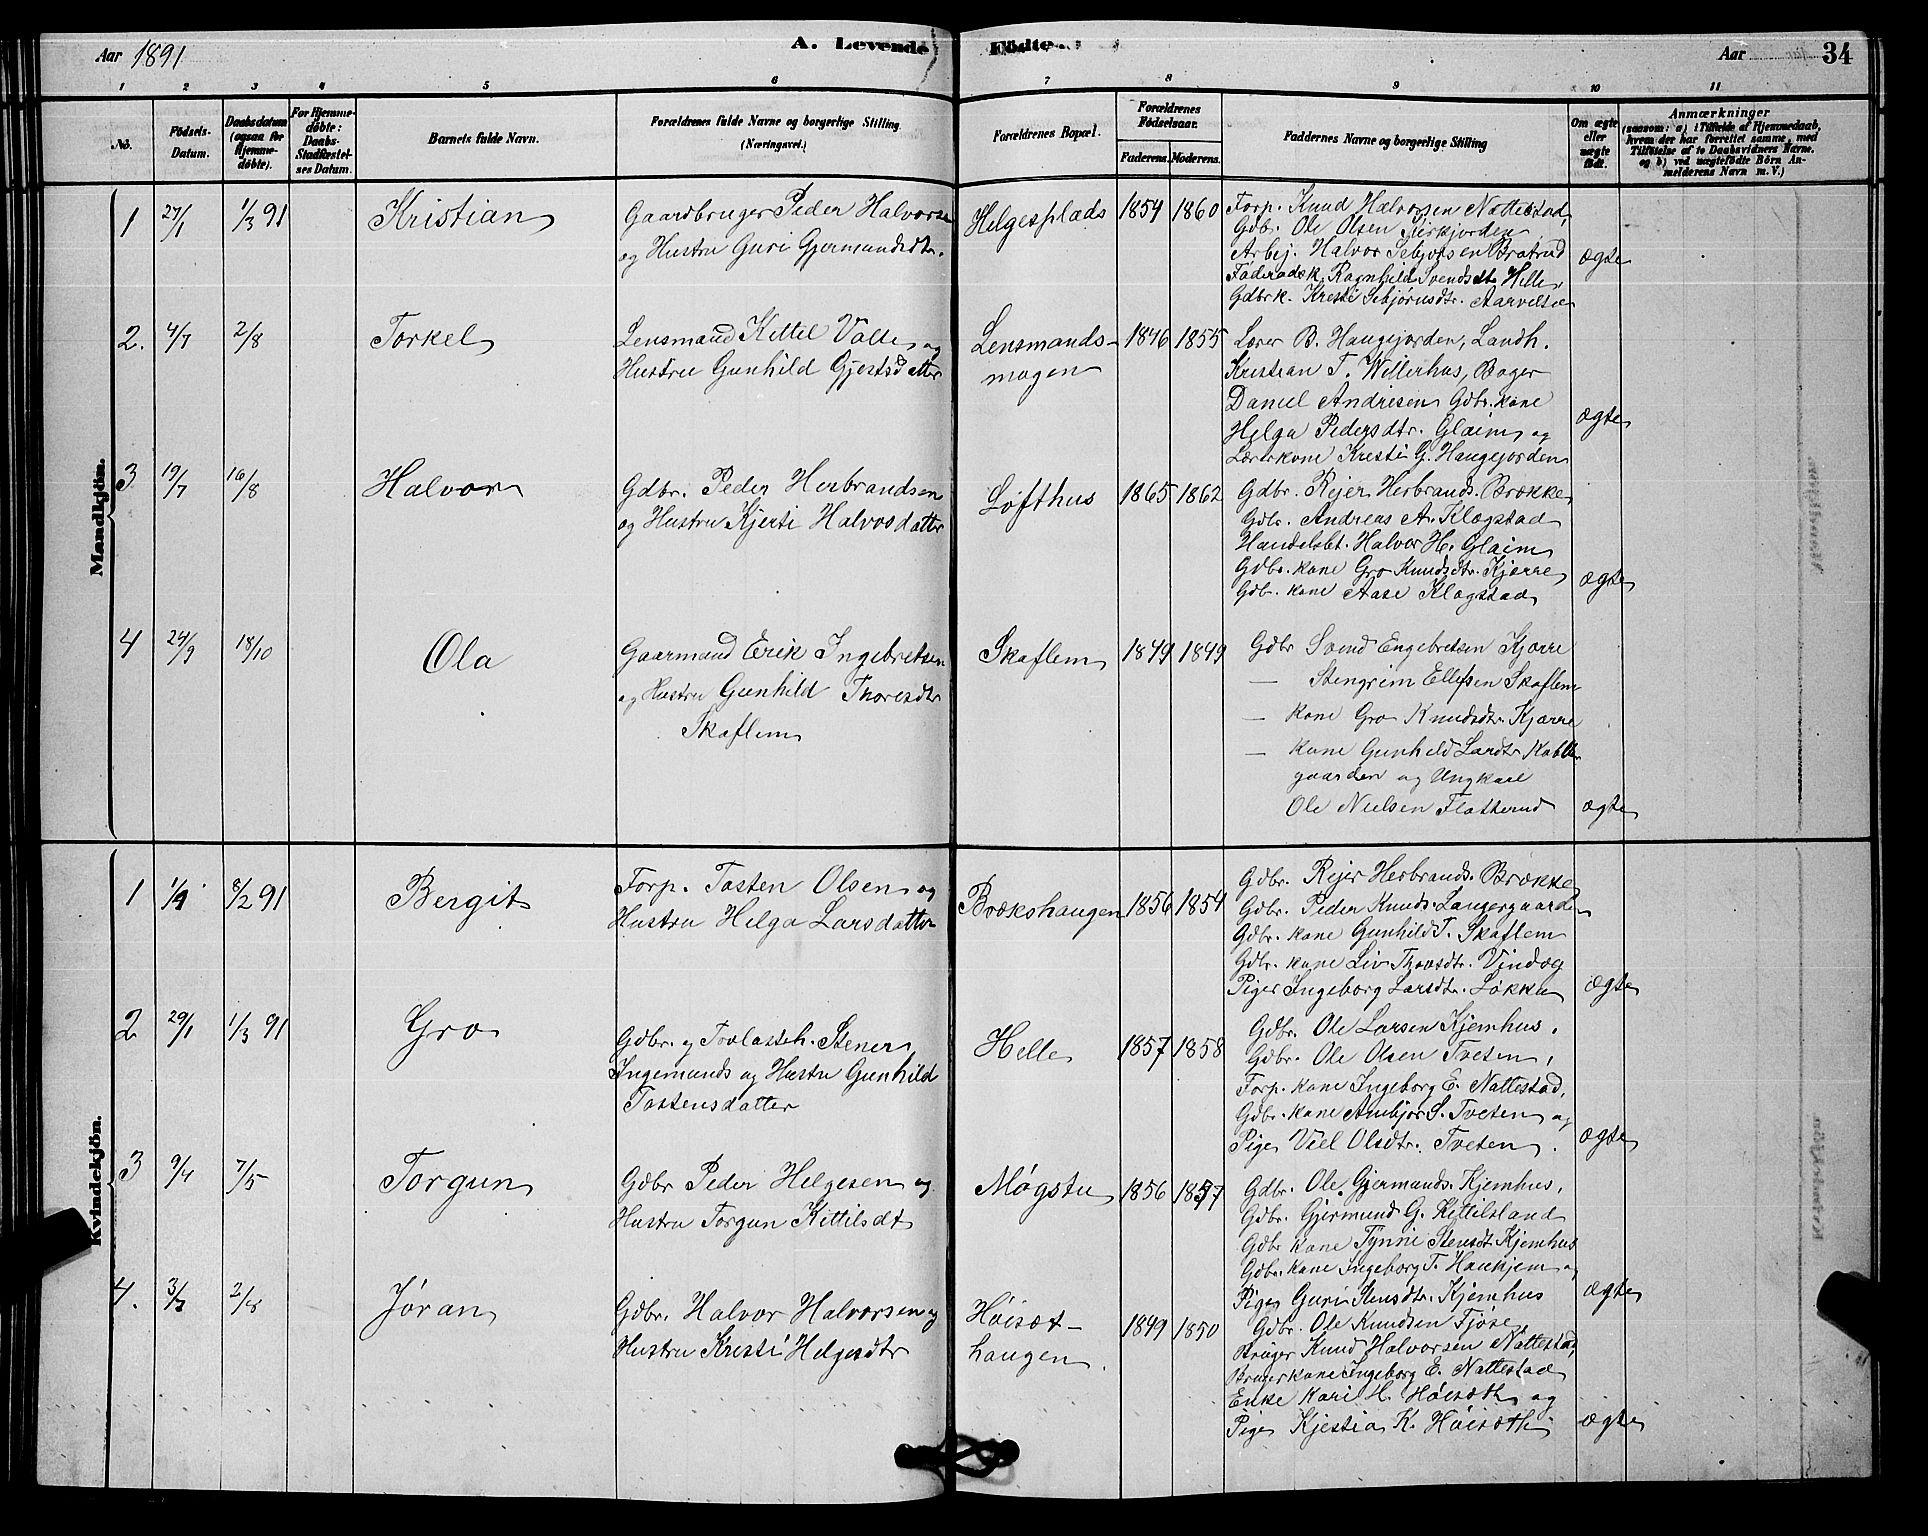 Aar 1891
A. Levende
Fødte.
Aar
34
1 2 3 4 5 6 7 8 9 10 11
No.
Fødsels-
Datum.
Daabsdatum
(ogsaa for
Hjemme-
døbte).
For Hjemme-
døbte:
Daabs-
Stadfæstel-
ses Datum.
Barnets fulde Navn.
Forældrenes fulde Navne og borgerlige Stilling
(Næringsvei.)
Forældrenes Bopæl.
Forældrenes
Fødselsaar.
Faderens. Moderens.
Faddernes Navne og borgerlige Stilling
Om ægte
eller
uægte
født.
Anmærkninger
(saasom: a) i Tilfælde af Hjemmedaab,
hvem der har forrettet samme, med
Tilføielse af to Daabsvidners Navne,
og b) ved uægtefødte Børn An-
melderens Navn m. V.)
Mandkjön.
1 27/1 1/3 91 Kristian
Gaardbruger Peder Halvorsen
og Hustru Guri Gjermundsdtr.
Helgesplads 1854 1860
Forp. Knud Halvorsen Nattestad,
Gdbr. Ole Olsen
Arbej. Halvor Bratrud
Føderådsk. Ragnhild Svendsdtr Helle,
Gdbrk. Kresti Sebjørnsdtr.
ægte
2. 4/7 2/8 Torkel
Lensmand Kittil Valle og
Hustru Gunhild Gjestsdatter
Lensmands-
mogen
1846 1855
Lærer B. Haugejorden, Landh.
Kristian T. Willerhus, Bager
Daniel Andresen Gdbr. kone
Helga Pedersdtr. Glaim og
Lærerkone Kresti G. Haugejorden
ægte
3 19/7 16/8 Halvor
Gdbr. Peder Herbrandsen
og Hustru Kjersti Halvosdatter
Løfthus 1865 1862
Gdbr. Rejer Herbrands. Brække
Gdbr. Andreas A. Klogstad
Handelsbt. Halvor H. Glaim
Gdbr. kone Gro Knudsdtr. Kjørre
Gdbr. kone Aase Klogstad
ægte
4 24/9 18/10 Ola
Gaarmand Erik Ingebretsen
og Hustru Gunhild Thoresdtr
Skaflem
Skaflem 1849 1849
Gdbr Svend Engebretsen Kjørre
— Stengrim Ellefsen Skaflem
— kone Gro Knudsdtr Kjørre
— kone Gunhild Larsdtr
gaarden og Ungkarl
Ole Nielsen Flatterud
ægte
Kvindekjön.
1 8/2 91 Bergit
Forp. Tosten Olsen og
Hustru Helga Larsdatter
Brækshaugen 1856 1854
Gdbr. Rejer Herbrands. Brække
Gdbr. Peder Knuds. Langergaarden
Gdbr. kone Gunhild T. Skaflem
Gdbr. kone Liv Thorsdtr. Vindeg
Pige Ingeborg Larsdtr. Løkka
ægte
2 29/1 1/3 91 Gro
Gdbr. og Stener
Ingemunds og Hustru Gunhild
Tostensdatter
Helle 1857 1858
Gdbr. Ole Larsen Kjemhus.
Gdbr. Ole Olsen Tveten,
Forp. kone Ingeborg E. Nattestad,
Gdbr. kone Ambjør S. Tveten og
Pige Viel Olsdtr. Tveten.
ægte
3 9/4 7/5 Torgun
Gdbr Peder Helgesen og
Hustru Torgun Kittilsdt
Møgstu 1856 1857
Gdbr. Ole Gjermunds. Kjemhus,
Gdbr. Gjermund G. Kittilsland
Gdbr kone Tynne Stensdt. Kjemhus
Gdbr. kone Ingeborg T. og
Pige Guri Stensdtr. Kjemhus
ægte
4. 2/8 Jøran
Gdbr. Halvor Halvorsen og
Hustru Kresti Helgesdtr
Høisæt-
haugen.
1849 1850
Gdbr. Ole Knudsen Fjøse,
Bruger Knud Halvorsen Nattestad,
Brugerkone Ingeborg E. Nattestad
Enke Kari H. Høisæth og
Pige Kjestia K. Høisæth
ægte